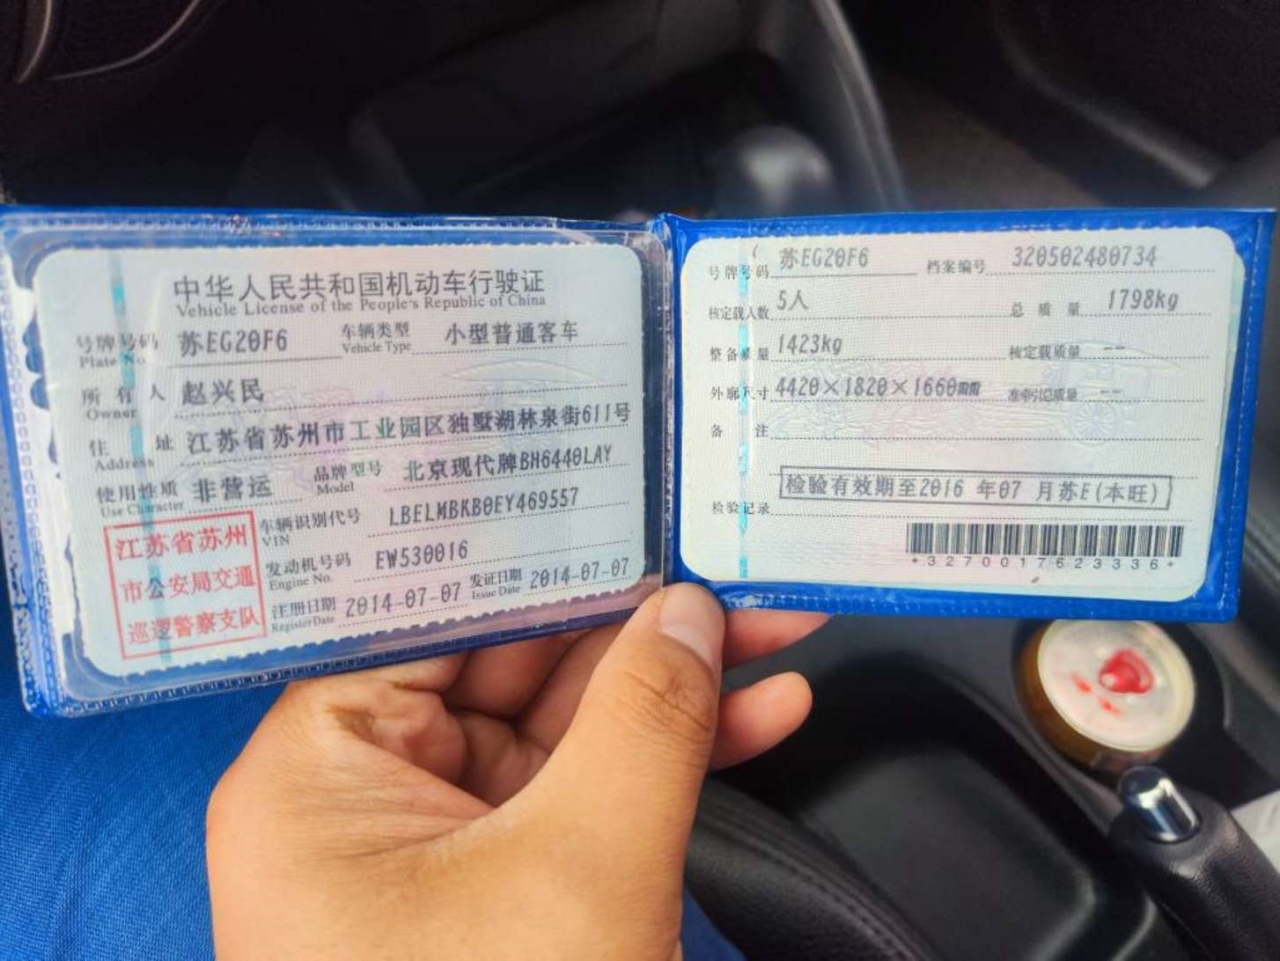 中华人民共和国机动车行驶证
Vehicle License of the People's Republic of China
号牌号码 苏EG20F6 车辆类型 小型普通客车
Plate No. Vehicle Type
所有人 赵兴民
Owner
住址 江苏省苏州市工业园区独墅湖林泉街611号
Address
使用性质 非营运 品牌型号 北京现代牌BH6440LAY
Use Character Model
江苏省苏州
市公安局交通
巡逻警察支队
车辆识别代号 LBELMBKB0EY469557
VIN
发动机号码 EW530016
Engine No.
注册日期 2014-07-07 发证日期 2014-07-07
Register Date Issue Date
号牌号码 苏EG20F6 档案编号 320502480734
核定载人数 5人 总质量 1798kg
整备质量 1423kg 核定载质量 --
外廓尺寸 4420×1820×1660mm 准牵引总质量 --
备注
检验有效期至2016 年07 月苏E(本旺)
检验记录
*3270017623336*